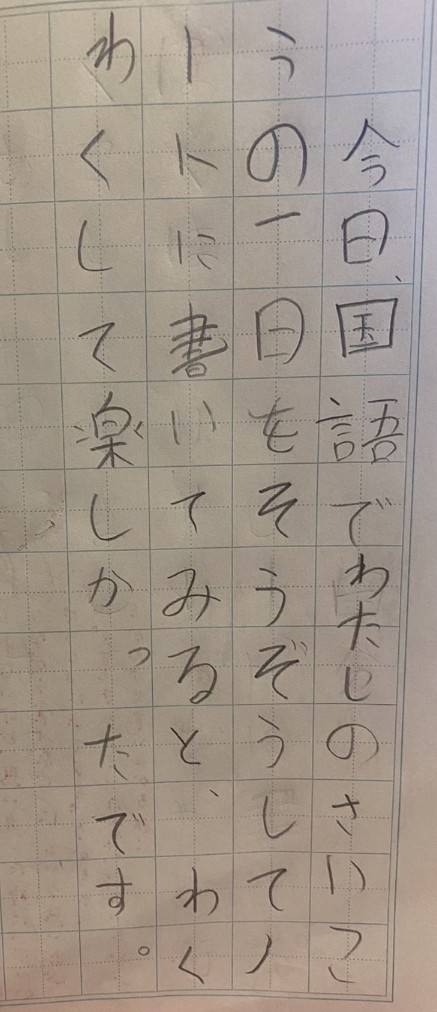 今日、国語でわたしのさいこ
うの一日をそうぞうしてノ
ートに書いてみると、わく
わくして楽しかったです。